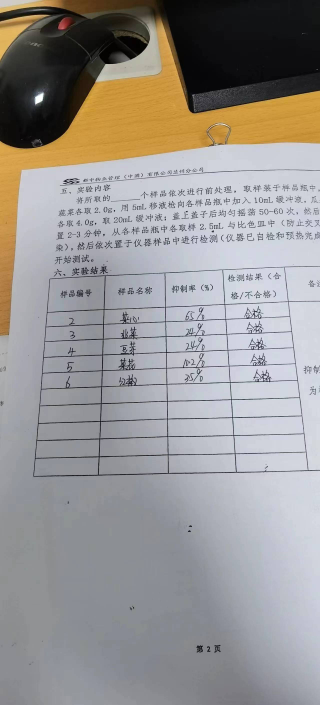 五、实验内容
将所取的 个样品依次进行前处理。取样装于样品瓶中,
蔬菜各取 2.0g, 用 5mL 移液枪向各样品瓶中加入 10mL 缓冲液、瓜
各取 4.0g, 取 20mL 缓冲液; 盖上盖子后均匀摇荡 50-60 次, 然后
置 2-3 分钟。从各样品瓶中各取样 2.5mL 与比色皿中(防止交叉
染), 然后依次置于仪器样品中进行检测(仪器已自检和预热完成
开始测试。
六、实验结果
样品编号 样品名称 抑制率(%) 检测结果(合格/不合格) 备
2 菜心 65% 合格
3 韭菜 24% 合格
4 豆芽 24% 合格
5 菜苔 102% 合格
6 35% 合格
抑制
为
第 2 页